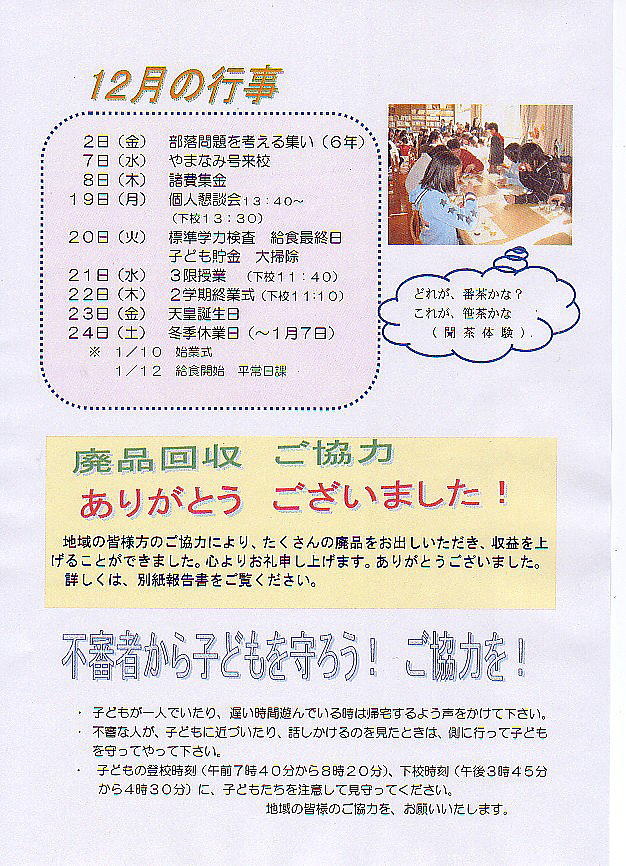 12月の行事
2日（金） 部落問題を考える集い（6年）
7日（水） やまなみ号来校
8日（木） 諸費集金
19日（月） 個人懇談会13：40～
（下校13：30）
20日（火） 標準学力検査 給食最終日
子ども貯金 大掃除
21日（水） 3限授業 （下校11：40）
22日（木） 2学期終業式（下校11：10）
23日（金） 天皇誕生日
24日（土） 冬季休業日（～1月7日）
※ 1／10 始業式
1／12 給食開始 平常日課
どれが、番茶かな？
これが、笹茶かな
（聞茶体験）．
廃品回収 ご協力
ありがとう ございました！
地域の皆様方のご協力により、たくさんの廃品をお出しいただき、収益を上
げることができました。心よりお礼申し上げます。ありがとうございました。
詳しくは、別紙報告書をご覧ください。
不審者から子どもを守ろう！ ご協力を！
・ 子どもが一人でいたり、遅い時間遊んでいる時は帰宅するよう声をかけて下さい。
・ 不審な人が、子どもに近づいたり、話しかけるのを見たときは、側に行って子ども
を守ってやって下さい。
・ 子どもの登校時刻（午前7時40分から8時20分）、下校時刻（午後3時45分
から4時30分）に、子どもたちを注意して見守ってください。
地域の皆様のご協力を、お願いいたします。